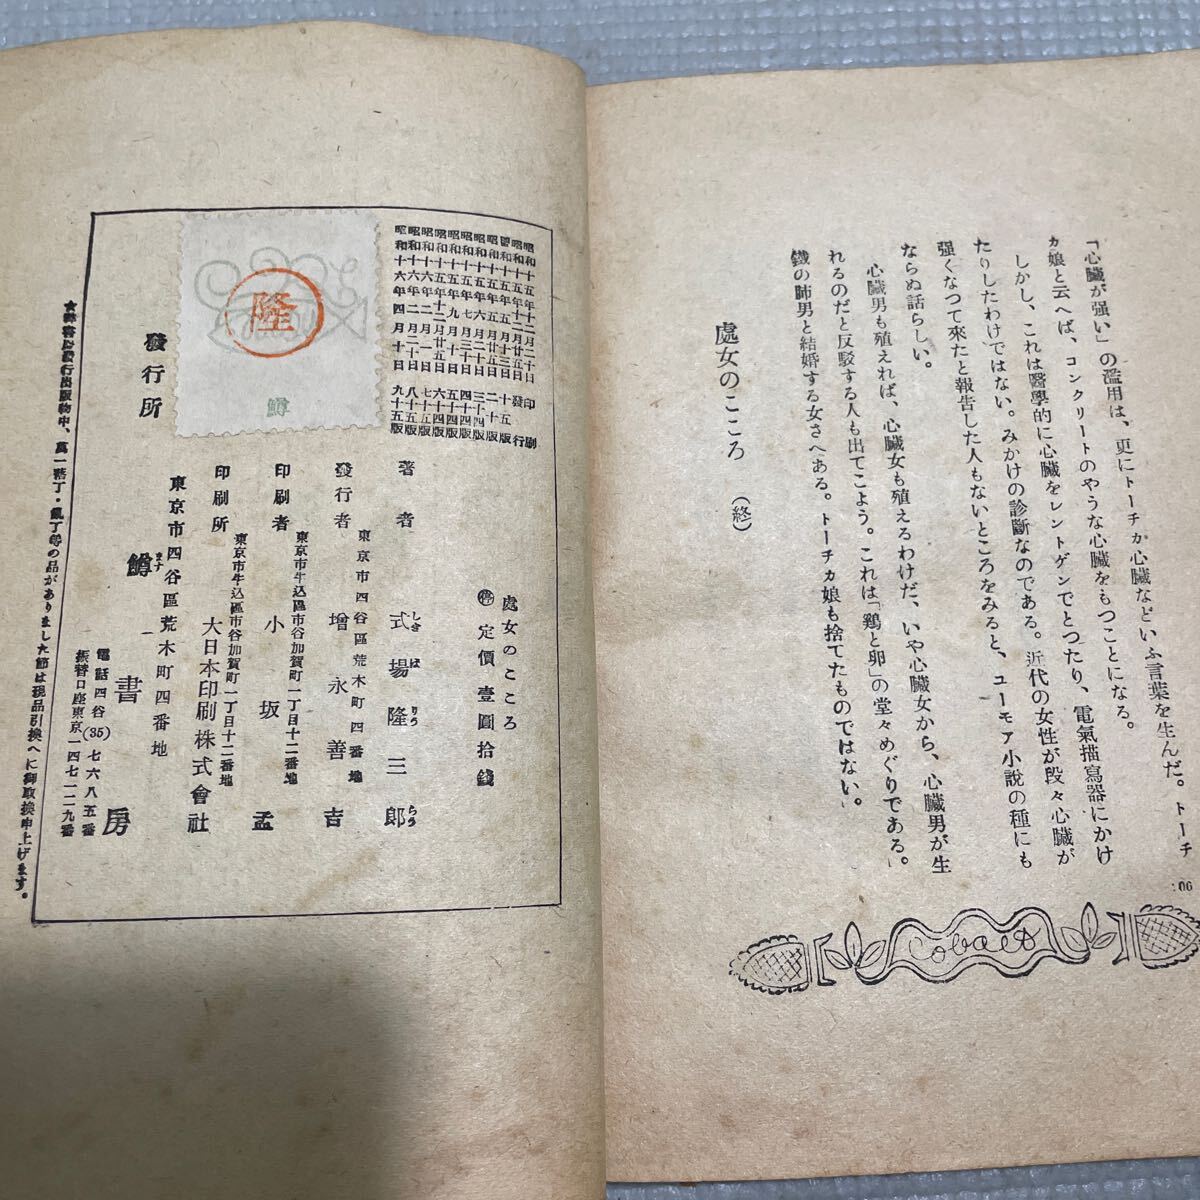 「心臟が强い」の濫用は、更にトーチカ心臟などいふ言葉を生んだ。トーチ
カ娘と云へば、コンクリートのやうな心臟をもつことになる。
しかし、これは醫學的に心臟をレントゲンでとつたり、電氣描寫器にかけ
たりしたわけではない。みかけの診斷なのである。近代の女性が段々心臟が
强くなつて來たと報告した人もないところをみると、ユーモア小說の種にも
ならぬ話らしい。
心臟男も殖えれば、心臟女も殖えるわけだ、いや心臟女から、心臟男が生
れるのだと反駁する人も出てこよう。これは「鷄と卵」の堂々めぐりである。
鐵の肺男と結婚する女さへある。トーチカ娘も捨てたものではない。
處女のこころ (終)
Cobalt
昭和十五年十二月二十日印刷
昭和十五年
昭和十五年
昭和十五年
昭和十五年
昭和十五年七月三十日四十四版
昭和十五年九月十日五十四版
昭和十五年十二月廿五日六十四版
昭和十六年二月一日七十五版
昭和十六年二月二十日八十五版
昭和十六年四月十日九十五版
隆
鱒
處女のこころ
定價壹圓拾錢
著者 式場隆三郎
しきばりうらう
東京市四谷區荒木町四番地
發行者 增永善吉
東京市牛込區市谷加賀町一丁目十二番地
印刷者 小坂孟
東京市牛込區市谷加賀町一丁目十二番地
印刷所 大日本印刷株式會社
東京市四谷區荒木町四番地
發行所 鱒書房
ます
電話四谷(35)七六八五番
振替口座東京一四七一二九番
發行出版物中、萬一落丁・亂丁等の品がありました節は現品引換へに御取換申上げます。